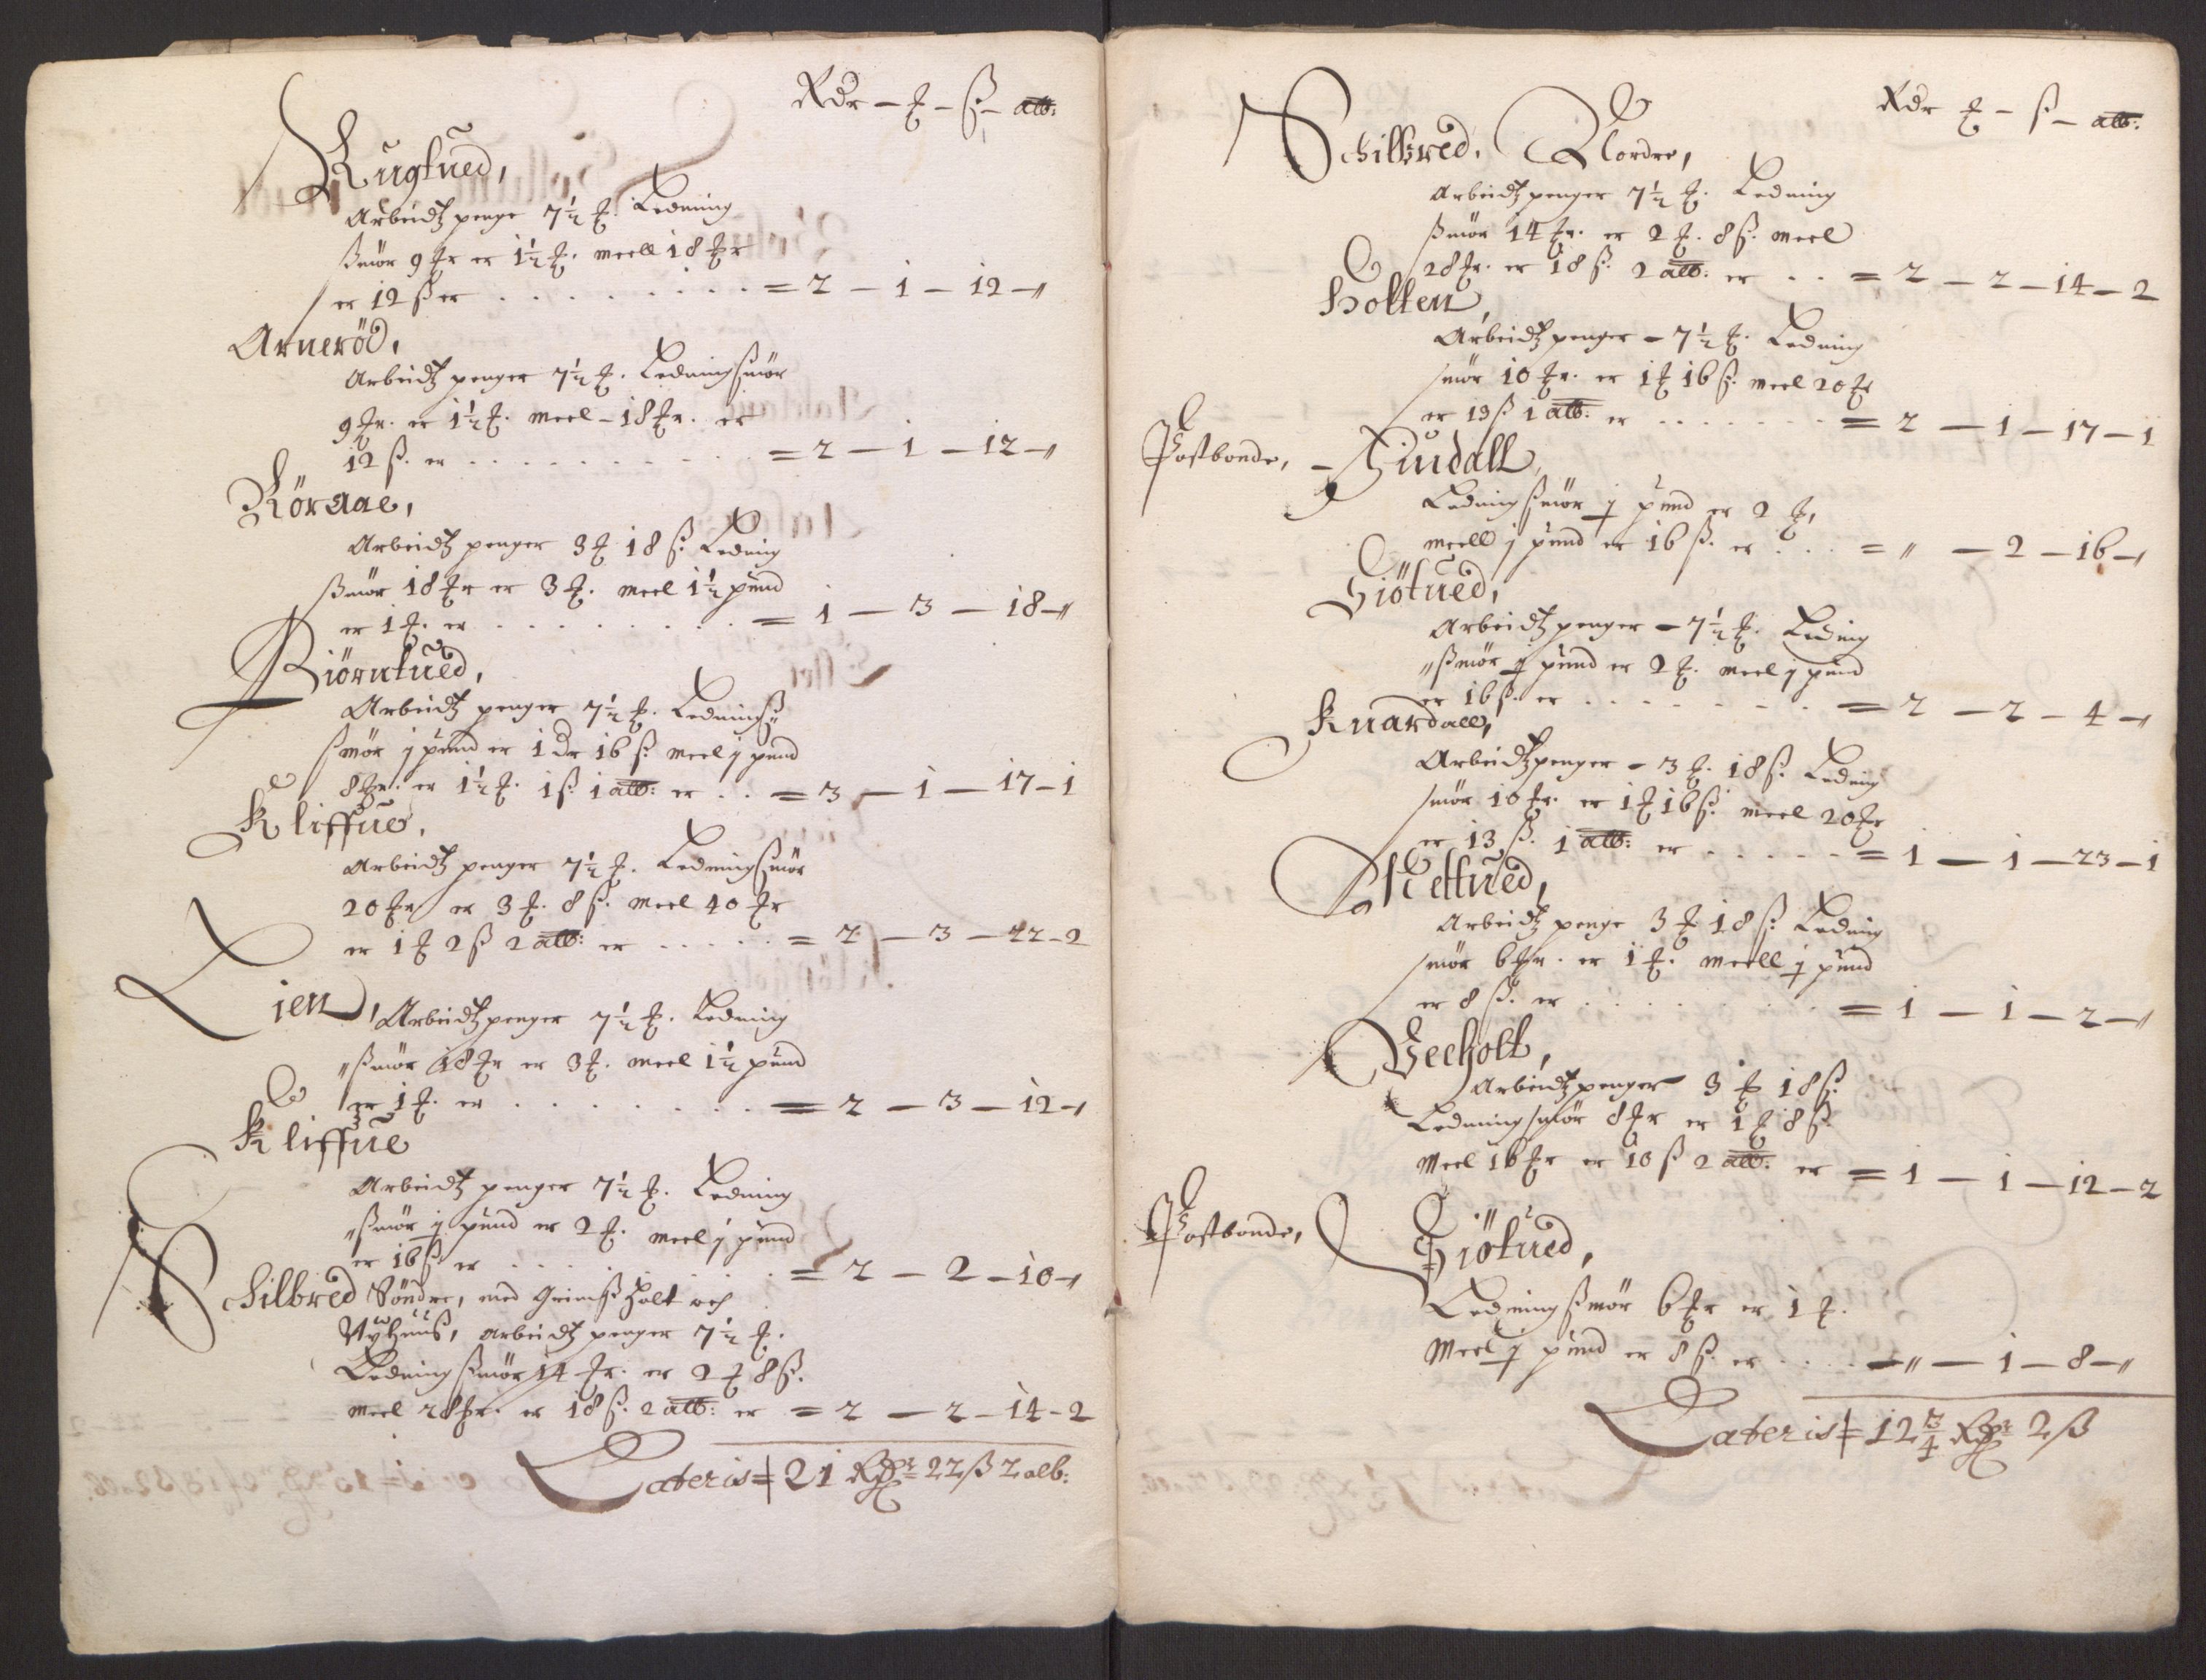 Rdr — ℔ — ß — alb:
Rugtued,
Arbeidtz penge 7½ ℔. Ledning
ßmör 9 ℔r er 1½ ℔. meell 18 ℔r
er 12 ß er . . . . . . . . = 2 — 1 — 12 — "
Arneröd,
Arbeidtz penger 7½ ℔. Ledningsmör
9 ℔r. er 1½ ℔. meel — 18 ℔r. er
12 ß. er . . . . . . . . = 2 — 1 — 12 — "
Röraae,
Arbeidtz penger 3 ℔ 18 ß. Ledning
ßmör 18 ℔r er 3 ℔. meel 1½ pund
er 1 ℔. er . . . . . . . . = 1 — 3 — 18 — "
Biörntued,
Arbeidtz penger 7½ ℔. Ledningß
smör j pund er 1 Dr 16 ß meel j pund
8 ℔r. er 1½ ℔. 1 ß 1 alb: er . . = 3 — 1 — 17 — 1
Kliffue,
Arbeidtz penger 7½ ℔. Ledningsmör
20 ℔r er 3 ℔. 8 ß. meel 40 ℔r
er 1 ℔ 2 ß 2 alb: er . . . . . = 2 — 3 — 22 — 2
Lien, Arbeidtz penger 7½ ℔. Ledning
"ßmör 18 ℔r er 3 ℔. meel 1½ pund
er 1 ℔. er . . . . . . . . = 2 — 3 — 12 — "
Kliffue
Arbeidtz penger 7½ ℔. Ledning
"ßmör j pund er 2 ℔. meel j pund
er 16 ß er . . . . . . . . = 2 — 2 — 10 — "
Schilbred Söndre, med Grimßholt och
Nyhuuß, arbeidtz penger 7½ ℔.
Ledning ßmör 14 ℔r. er 2 ℔ 8 ß.
meel 28 ℔r. er 18 ß. 2 alb: er = 2 — 2 — 14 — 2
Lateris = 21 Rdr 22 ß 2 alb:
Rdr ℔ — ß — alb:
Schilbred, Nordre,
Arbeidtz penger 7½ ℔. Ledning
ßmör 14 ℔r. er 2 ℔. 8 ß. meel
28 ℔r. er 18 ß. 2 alb: er . . = 2 — 2 — 14 — 2
Holten,
Arbeidtz penger — 7½ ℔. Ledning
smör 10 ℔r. er 1 ℔ 16 ß. meel 20 ℔r
er 13 ß 1 alb: er . . . . . . . = 2 — 1 — 17 — 1
Postbonde, — Sundall,
Ledning ßmör j pund er 2 ℔,
meell j pund er 16 ß. er . . . = " — 2 — 16 — "
Giötued,
Arbeidtz penger — 7½ ℔. Leding
"ßmör j pund er 2 ℔. meel j pund
er 16 ß. er . . . . . . . . = 2 — 2 — 4 — "
Knardall,
Arbeidtz penger — 3 ℔. 18 ß. Ledning
smör 10 ℔r. er 1 ℔ 16 ß. meel 20 ℔r
er 13 ß. 1 alb: er . . . . . = 1 — 1 — 23 — 1
Skettued,
Arbeidtz penge 3 ℔ 18 ß. Ledning
smör 6 ℔r. er 1 ℔. meell j pund
er 8 ß. er . . . . . . . . = 1 — 1 — 2 — "
Veeholt,
Arbeidtz penger 3 ℔ 18 ß.
Ledning smör 8 ℔r er 1 ℔ 8 ß.
Meel 16 ℔r er 10 ß 2 alb: er = 1 — 1 — 12 — 2
Postbonde, Giötued,
Ledning ßmör 6 ℔r er 1 ℔.
Meel j pund er 8 ß. er . . . . — " — 1 — 8 — "
Lateris = 12 ¾ Rdr 2 ß